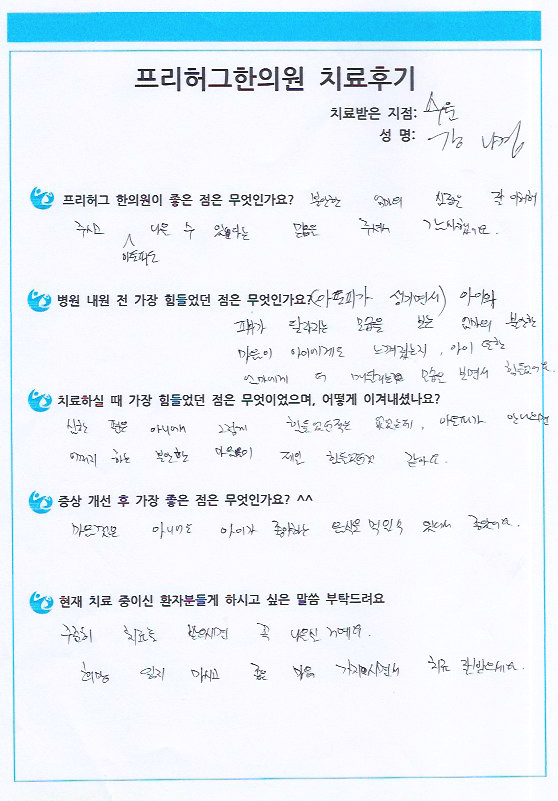 프리허그한의원 치료후기
치료받은 지점: 수원
성 명: 강
프리허그 한의원이 좋은 점은 무엇인가요? 불안한 엄마의 심정을 잘 이해해
주시고 나을 수 있다는 믿음을 주셔서 감사했어요.
아토피도
병원 내원 전 가장 힘들었던 점은 무엇인가요? (아토피가 생기면서) 아이의
피부가 달라지는 모습을 보는 엄마의 불안한
마음이 아이에게도 느껴졌는지, 아이 또한
엄마에게 더 매달리는 모습을 보면서 힘들었어요.
치료하실 때 가장 힘들었던 점은 무엇이었으며, 어떻게 이겨내셨나요?
심한 편은 아니어서 그렇게 힘들었던적은 없었는데, 아토피가 안나으면
어쩌지 하는 불안한 마음이 제일 힘들었던것 같아요.
증상 개선 후 가장 좋은 점은 무엇인가요? ^^
아니어도 아이가 좋아하는 음식을 먹일수 있어서 좋았어요.
현재 치료 중이신 환자분들게 하시고 싶은 말씀 부탁드려요
꾸준히 치료를 받으시면 꼭 나으실 거예요.
희망 잃지 마시고 좋은 마음 가지시면서 치료 잘받으세요.